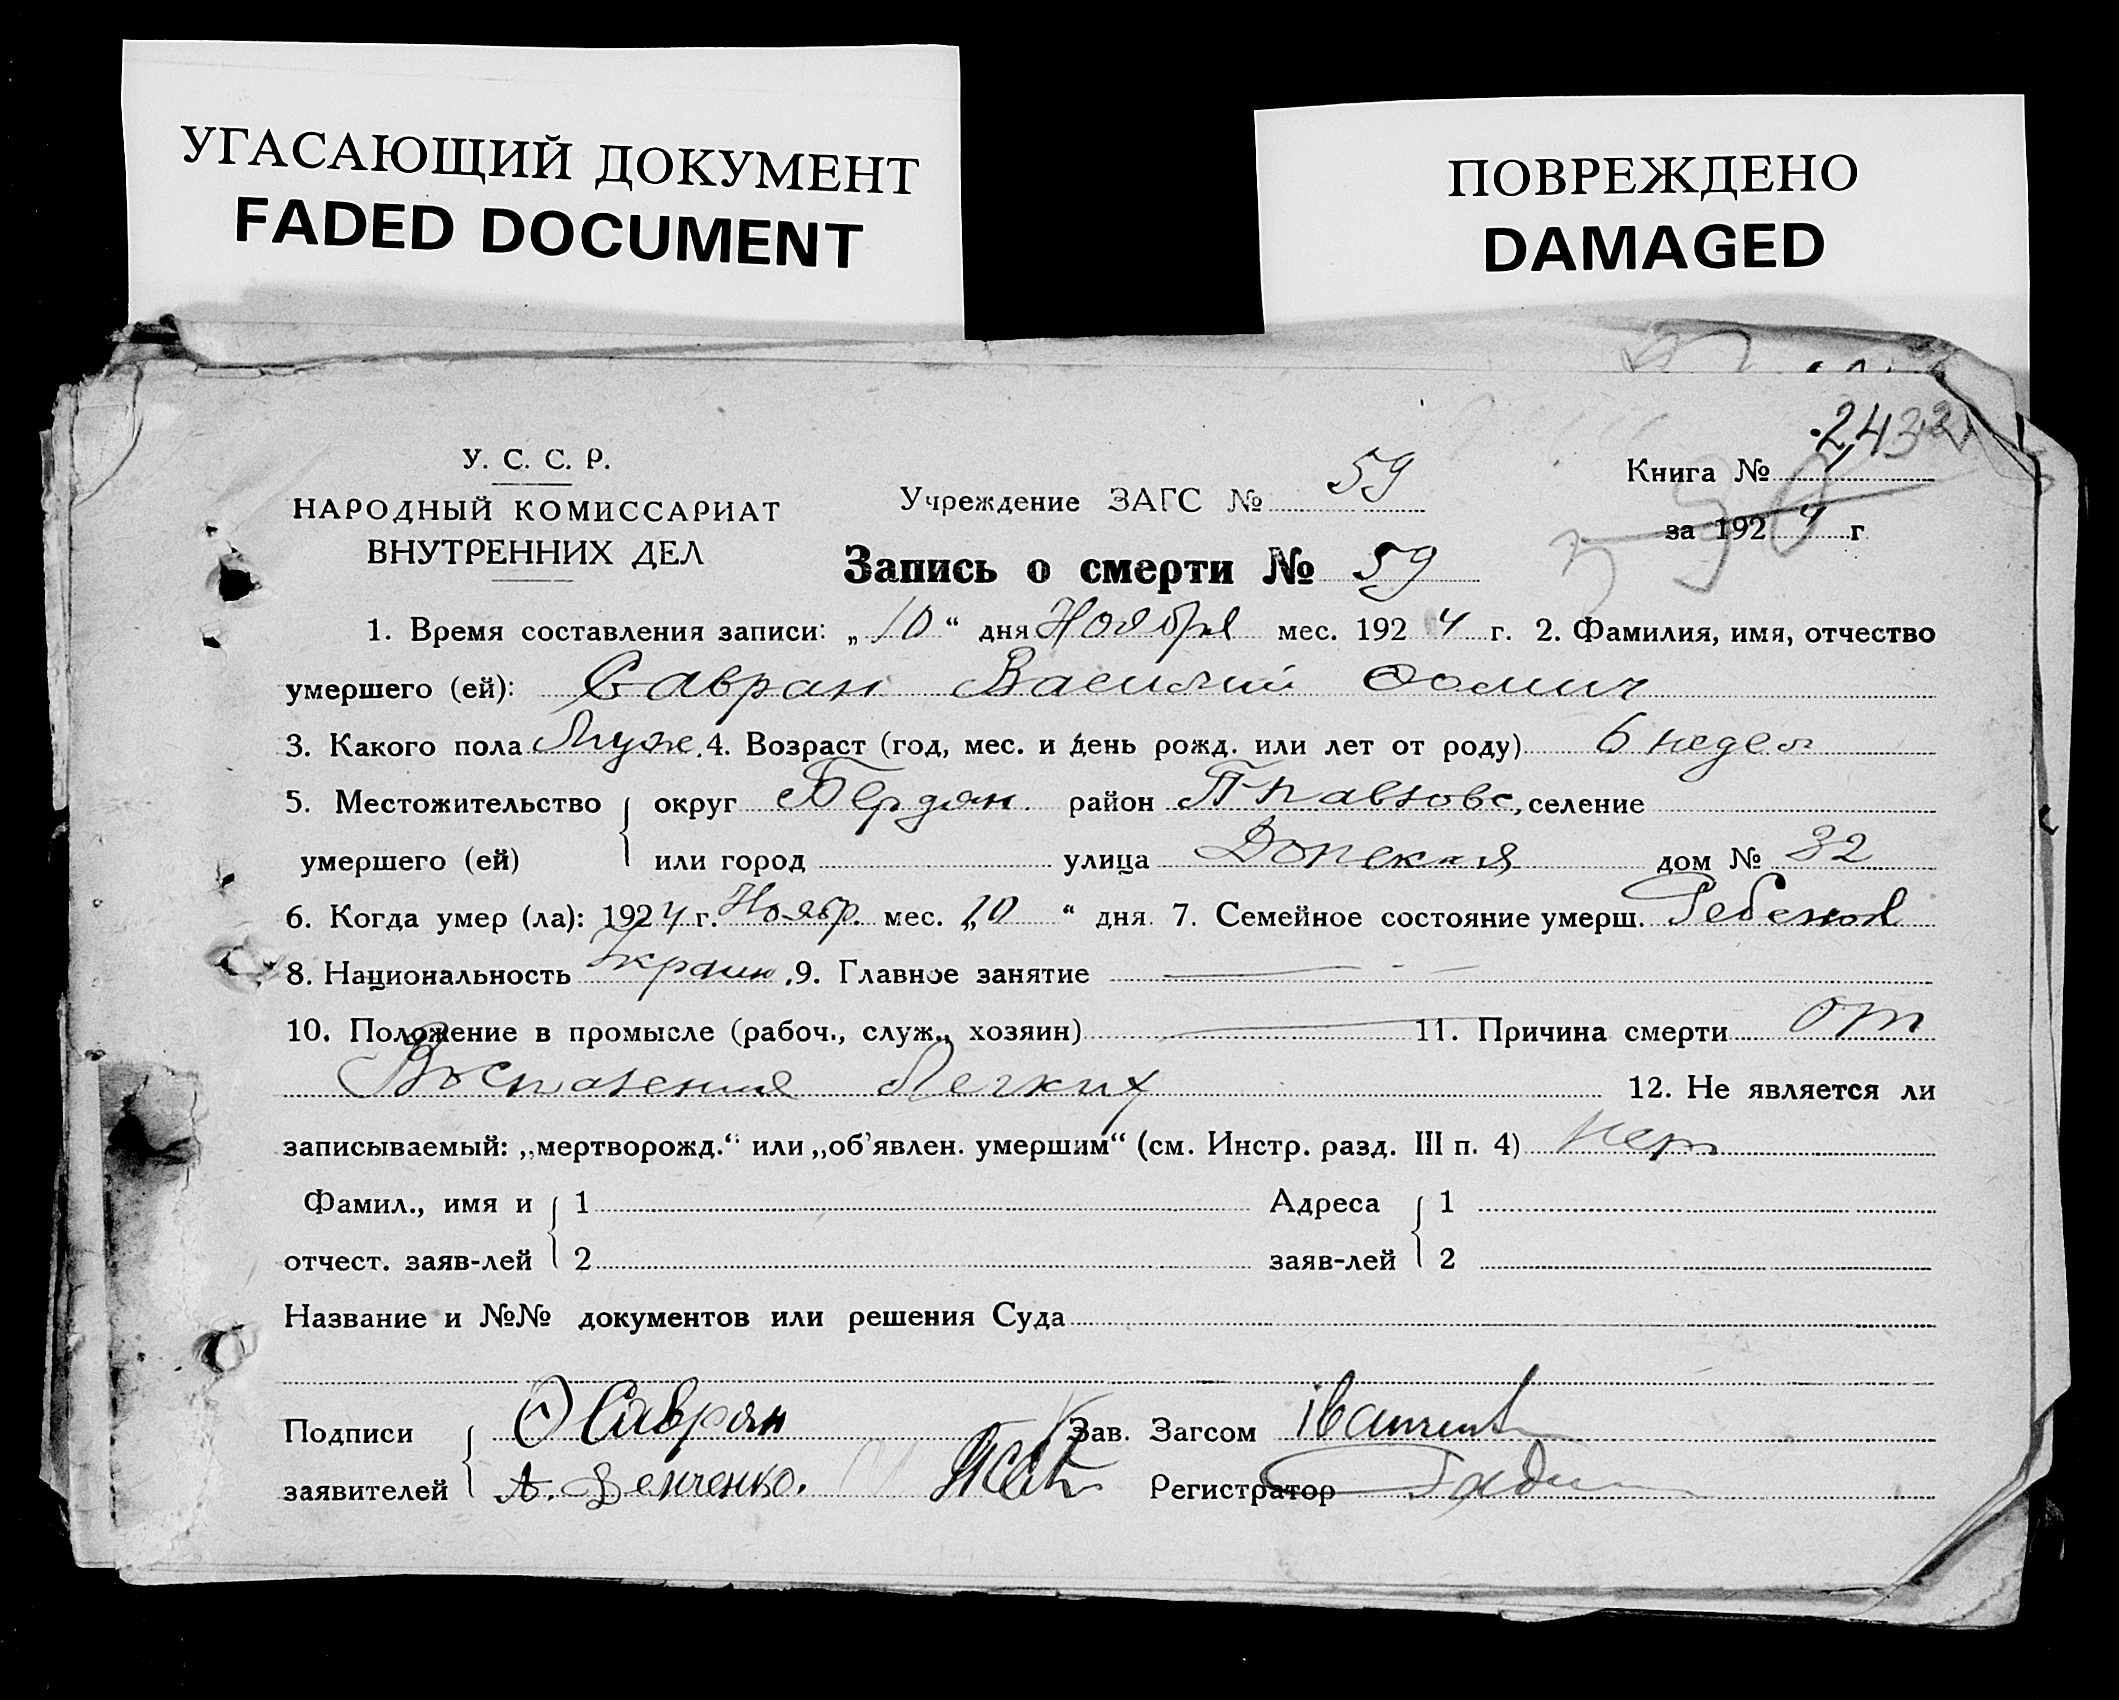 УГАСАЮЩИЙ ДОКУМЕНТ
FADED DOCUMENT
ПОВРЕЖДЕНО
DAMAGED
У. С. С. Р.
НАРОДНЫЙ КОМИССАРИАТ
ВНУТРЕННИХ ДЕЛ
Учреждение ЗАГС № 59
Книга № 2432
за 1924 г
Запись о смерти № 59
1. Время составления записи: „10“ дня Ноября мес. 1924 г. 2. Фамилия, имя, отчество
умершего (ей): Савран Василий Фомич
3. Какого пола Муже. 4. Возраст (год, мес. и день рожд. или лет от роду) 6 недел
5. Местожительство округ Бердян. район селение
умершего (ей) или город улица Донская дом № 32
6. Когда умер (ла): 1924 г. Ноябр. мес. „10“ дня. 7. Семейное состояние умерш. Ребенок
8. Национальность Украин. 9. Главное занятие —
10. Положение в промысле (рабоч., служ., хозяин) — 11. Причина смерти от
Воспаления Легких 12. Не является ли
записываемый: „мертворожд.“ или „об'явлен. умершим“ (см. Инстр. разд. III п. 4) нет
Фамил., имя и 1 Адреса 1
отчест. заяв-лей 2 заяв-лей 2
Название и №№ документов или решения Суда
Подписи Савран Зав. Загсом
заявителей Регистратор